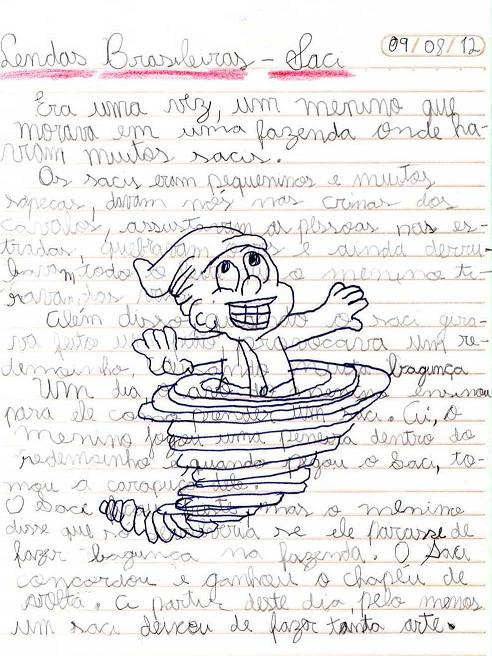 Lendas Brasileiras - Saci
09/08/12
Era uma vez, um menino que
morava em uma fazenda onde ha-
viam muitos sacis.
Os sacis eram pequeninos e muitos
sapecas, davam nós nas crinas dos
cavalos, assustavam as pessoas nas es-
tradas, quebravam e ainda derru-
bavam todo o o menino ti-
rava das
Além disso o saci gira-
va feito provocava um re-
demoinho, bagunça
Um dia menino ensinou
para ele como prender um saci. Aí, o
menino jogou uma peneira dentro do
redemoinho e quando pegou o Saci, to-
mou a carapuça dele.
O Saci mas o menino
disse que só se ele parasse de
fazer bagunça na fazenda. O Saci
concordou e ganhou o chapéu de
volta. A partir deste dia, pelo menos
um saci deixou de fazer tanta arte.